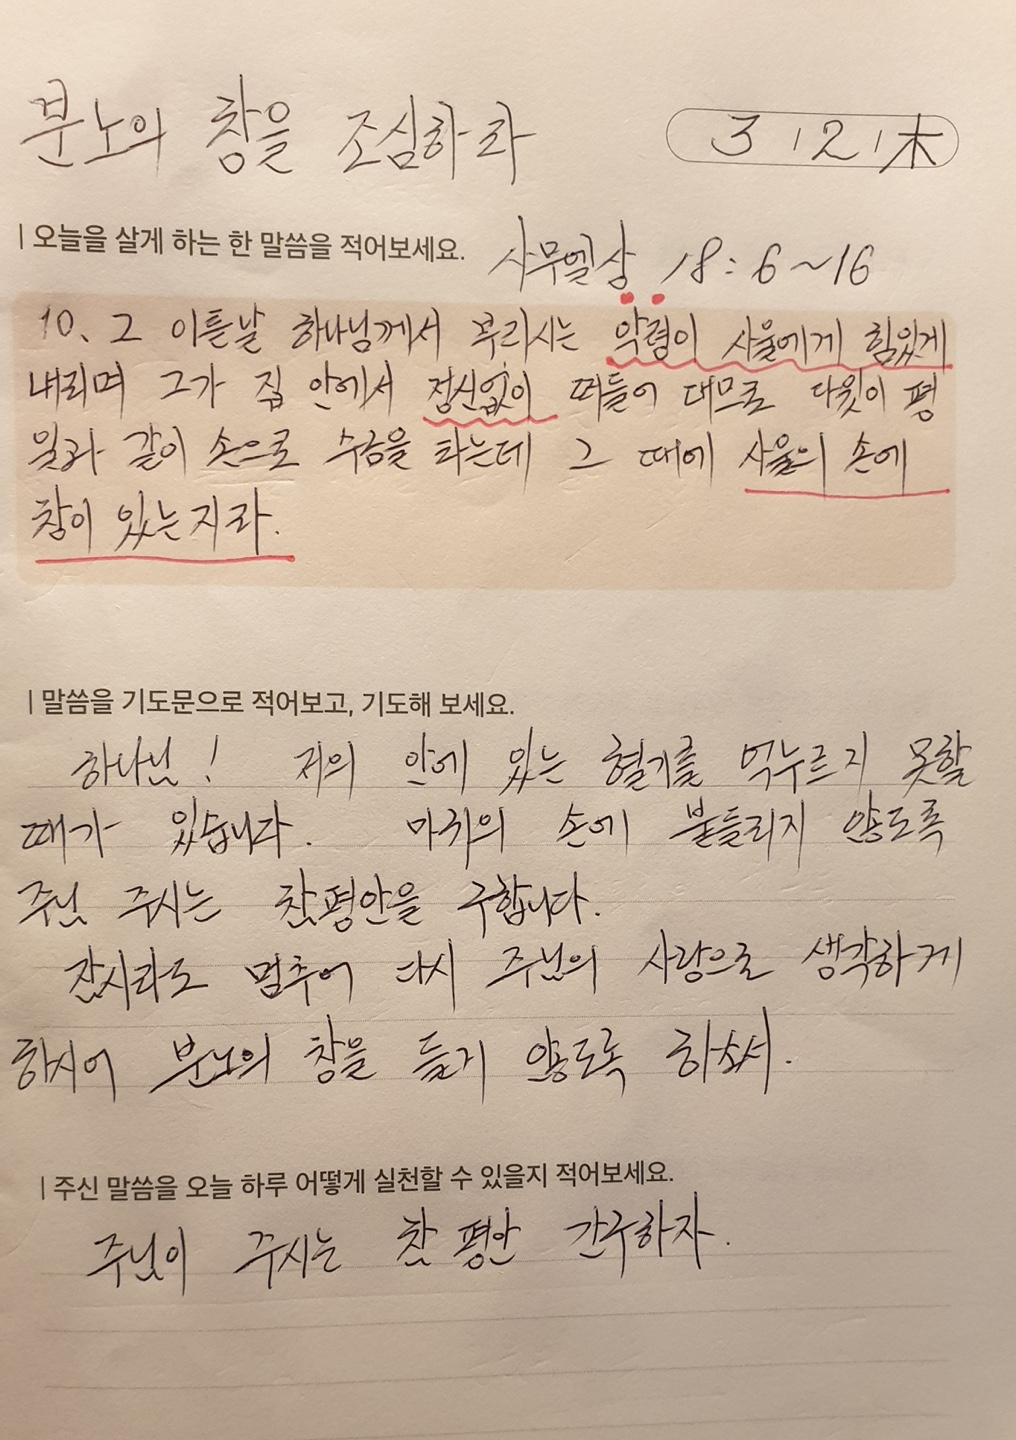 분노의 창을 조심하라
3 | 2 | 木
| 오늘을 살게 하는 한 말씀을 적어보세요. 사무엘상 18:6~16
10. 그 이튿날 하나님께서 부리시는 악령이 사울에게 힘있게
내리며 그가 집 안에서 정신없이 떠들어 대므로 다윗이 평
일과 같이 손으로 수금을 타는데 그 때에 사울의 손에
창이 있는지라.
| 말씀을 기도문으로 적어보고, 기도해 보세요.
하나님! 저의 안에 있는 혈기를 억누르지 못할
때가 있습니다. 마귀의 손에 붙들리지 않도록
주님 주시는 참평안을 구합니다.
잠시라도 멈추어 다시 주님의 사랑으로 생각하게
하시어 분노의 창을 들지 않도록 하소서.
| 주신 말씀을 오늘 하루 어떻게 실천할 수 있을지 적어보세요.
주님이 주시는 참 평안 간구하자.